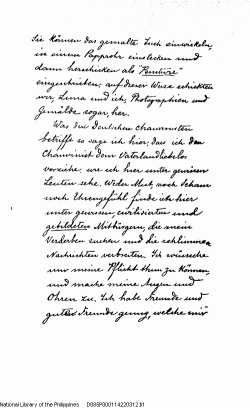 Sie können das gemalte Tuch einwickeln,
in einem Papprohr einstecken und
dann herschicken als Rembire
eingeschrieben; auf dieser Weise schickten
wir, Luna und ich, Photographien und
Gemälde sogar, her.
Was den Deutschen Chauvinisten
betrifft so sage ich hier, das ich den
Chauvinist dem Vaterlandliebelos
vorziehe, wie ich hier unter gewissen
Leuten sehe. Weder Mut, noch Scham
noch Ehrengefühl finde ich hier
unter gewissen, civilisierten und
gebildeten Mitbürgern, die mein
Verderben suchen und die schlimmen
Nachrichten verbreiten. Ich wünsche
nur meine Pflicht thun zu können,
und mache meine Augen und
Ohren zu. Ich habe Freunde und
gute Freunde genug, welche mir
National Library of the Philippines